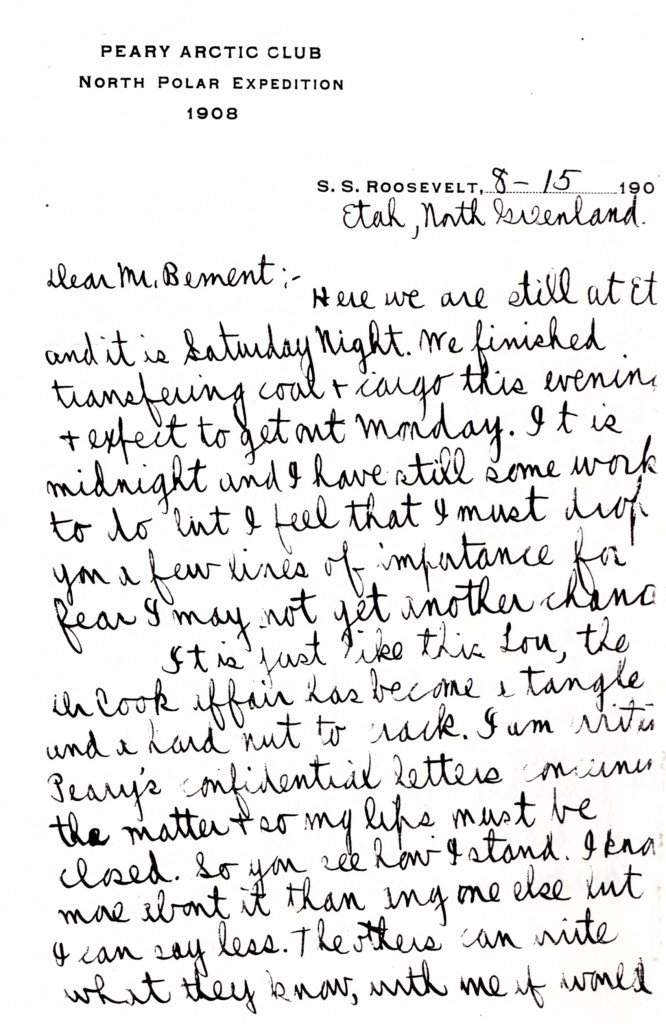 PEARY ARCTIC CLUB
NORTH POLAR EXPEDITION
1908
S. S. ROOSEVELT, 8 – 15 190
Etah, North Greenland.
Dear Mr. Bement:-
Here we are still at Et
and it is Saturday Night. We finished
transfering coal + cargo this evenin
+ expect to get out Monday. It is
midnight and I have still some work
to do but I feel that I must drop
you a few lines of importance for
fear I may not get another chanc
It is just like this Lou, the
Dr Cook affair has become a tangle
and a hard nut to crack. I am writin
Peary's confidential letters concernin
the matter + so my lips must be
closed. So you see how I stand. I kno
more about it than any one else but
I can say less. The others can write
what they know, with me it would